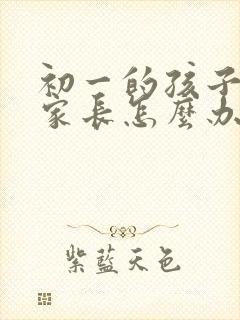 初一的孩子
家長怎麼办
紫藍天色